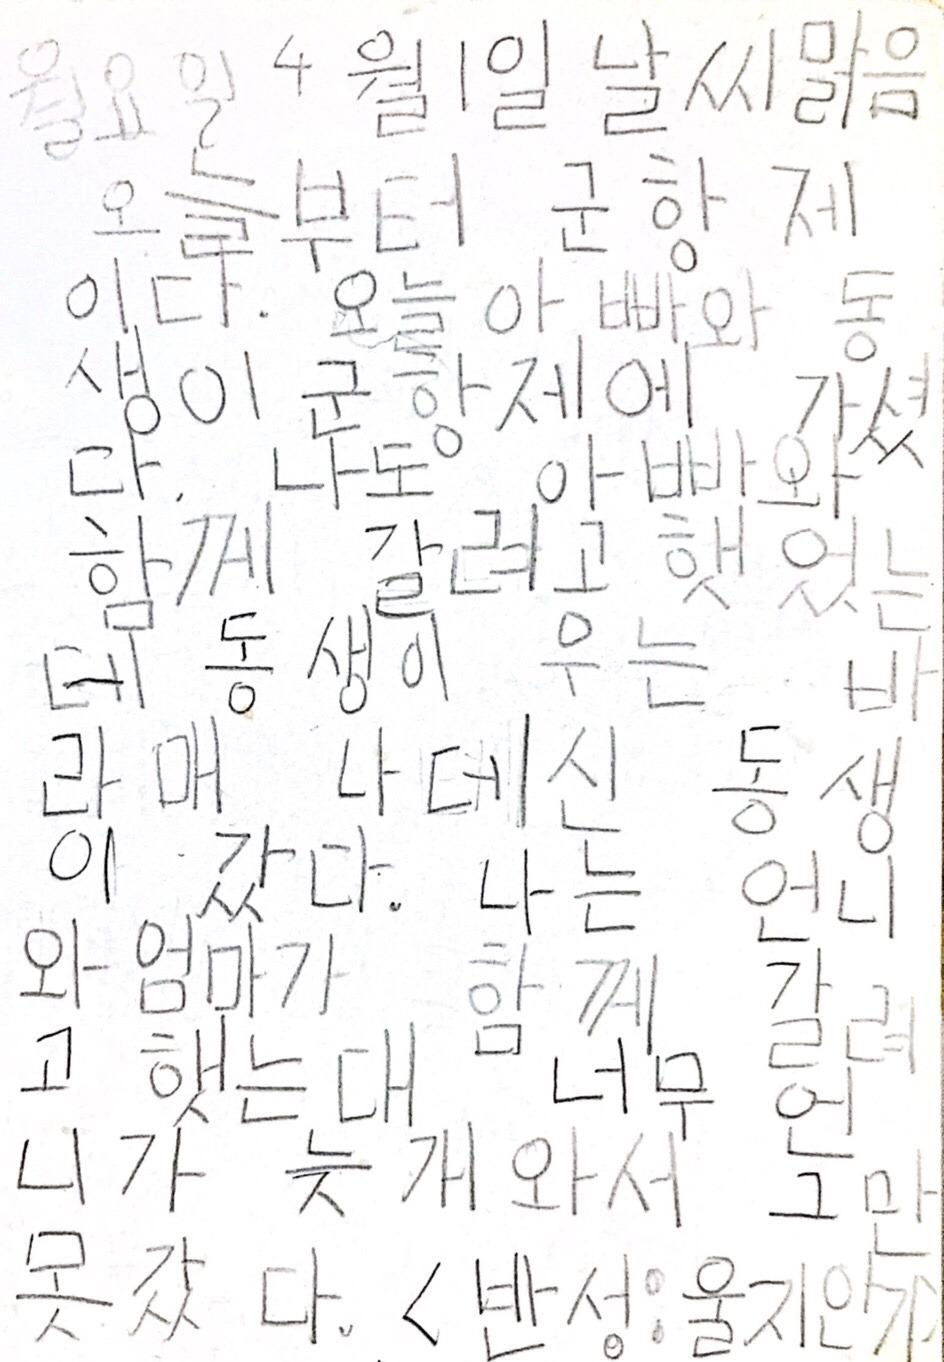 월요일 4월1일 날씨맑음
오늘부터 군항제
이다. 오늘 아빠와 동
생이 군항제에 가셨
다. 나도 아빠와
함께 갈려고 햇었는
데 동생이 우는 바
라매 나데신 동생
이 갔다. 나는 언니
와 엄마가 함께 갈려
고 햇는대 너무 언
니가 늣개와서 그만
못갔다. <반성:울지안기